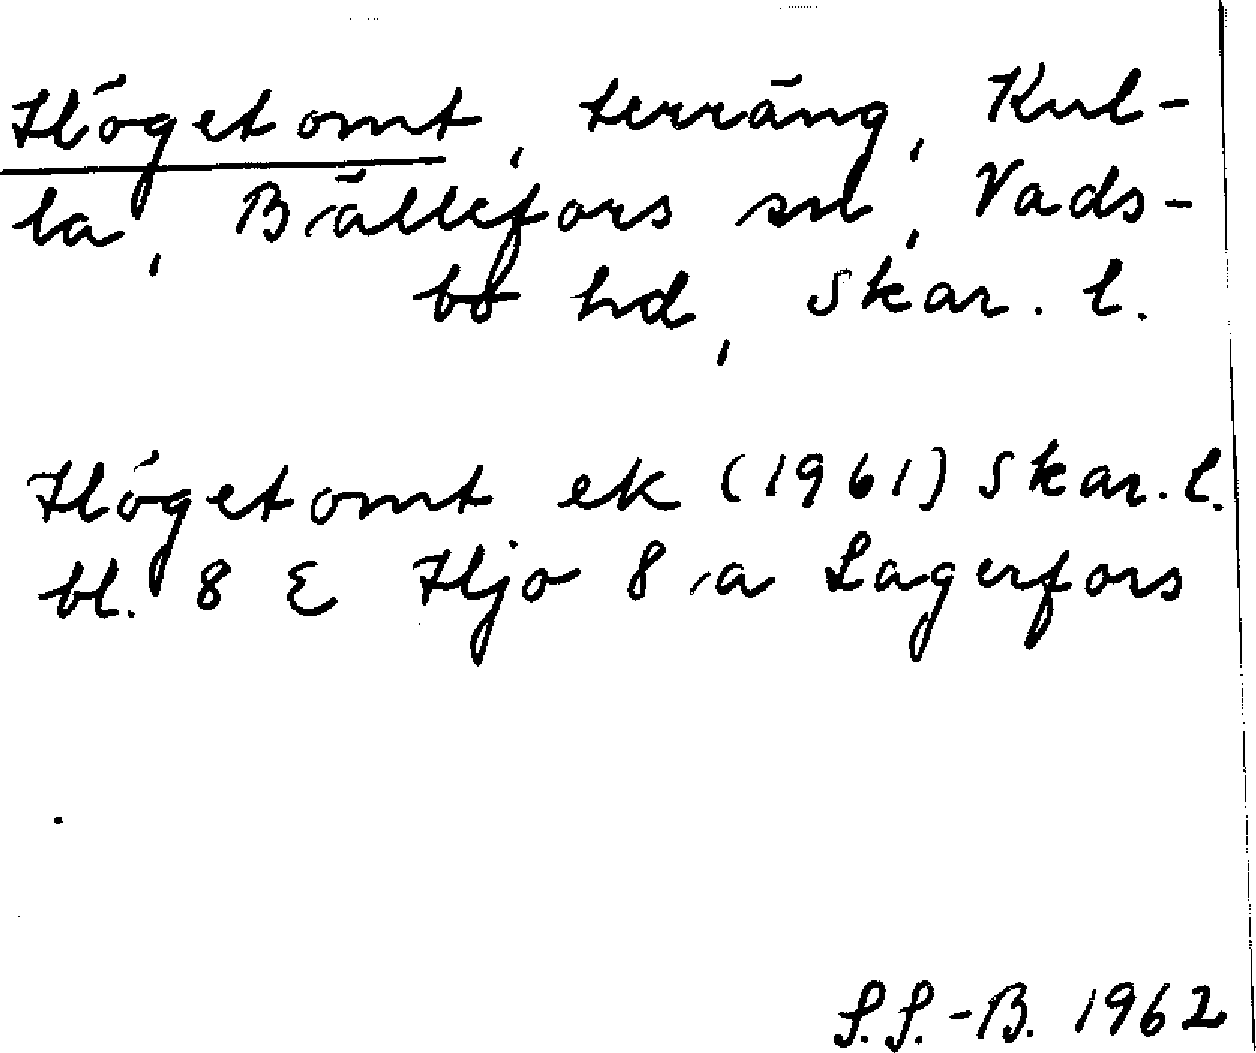 Högetomt, terräng, Kul-
la, Bällefors sn, Vads-
bo hd, Skar. l.
Högetomt ek (1961) Skar. l.
bl. 8 E Hjo 8 a Lagerfors
S.S.-B. 1962